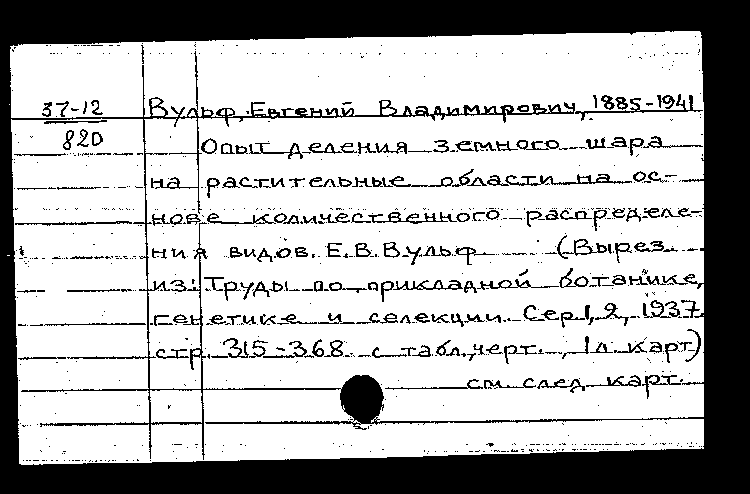 37-12 Вульф, Евгений Владимирович, 1885-1941
820 Опыт деления земного шара
на растительные области на ос-
нове количественного распределе-
ния видов. Е.В.Вульф (Вырез.
из: Труды по прикладной ботанике,
генетике и селекции. Сер.1, 2, 1937.
стр. 315-368 с табл., черт., 1 л. карт)
см. след. карт.